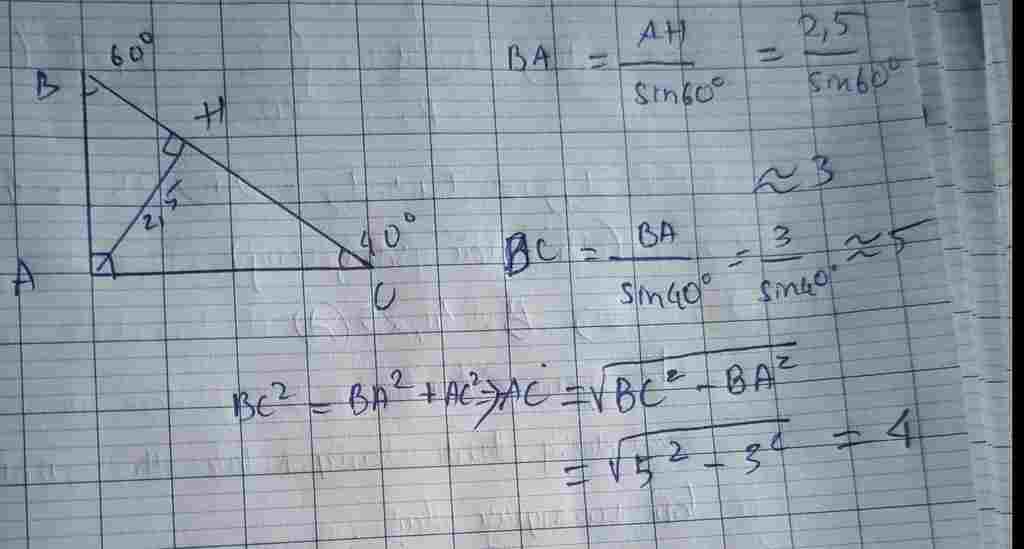 60°
B
H
2,5
A
40°
C
BA = AH / sin60° = 2,5 / sin60°
≈ 3
BC = BA / sin40° = 3 / sin40° ≈ 5
BC² = BA² + AC² ⇒ AC = √(BC² - BA²)
= √(5² - 3²) = 4